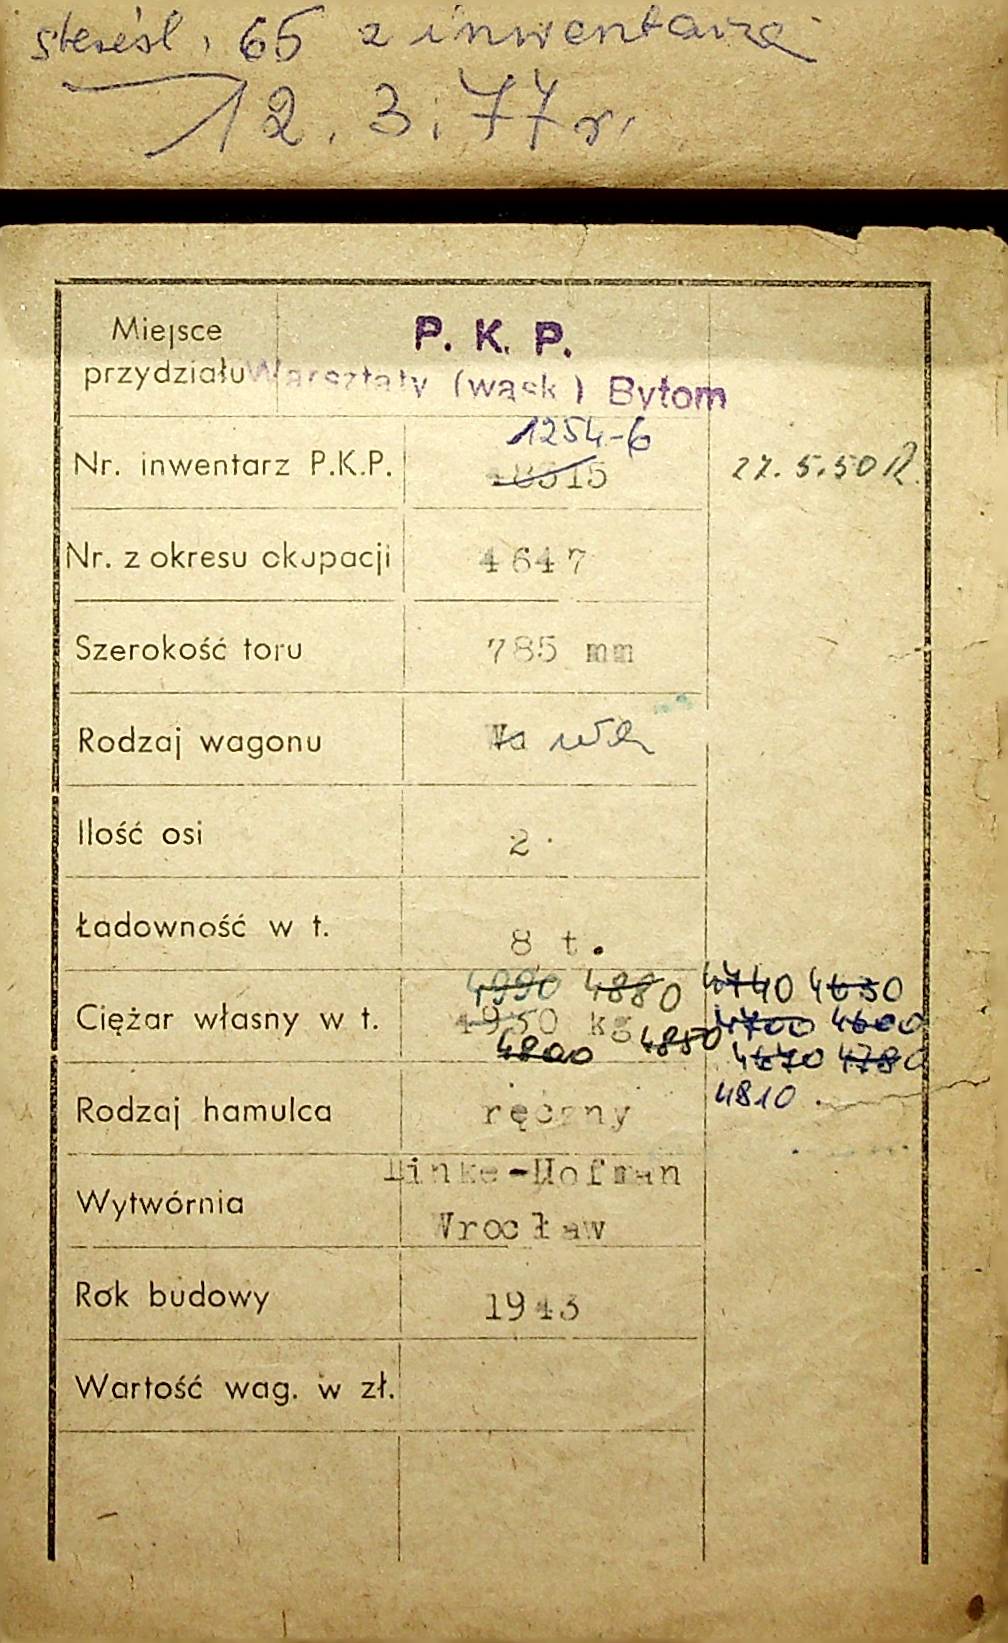 skreśl. 65 z inwentarza
12. 3. 77 r.
Miejsce przydziału
P. K. P.
Warsztaty (wąsk) Bytom
1254-6
Nr. inwentarz P.K.P.
27. 5. 50 R.
Nr. z okresu okupacji 4647
Szerokość toru 785 mm
Rodzaj wagonu
Ilość osi 2
Ładowność w t. 8 t.
4990 4880 4740 4650
Ciężar własny w t. 4950 kg 4700 4600
4800 4850 4670 4780
4810
Rodzaj hamulca ręczny
Linke-Hofman
Wytwórnia
Wrocław
Rok budowy 1943
Wartość wag. w zł.